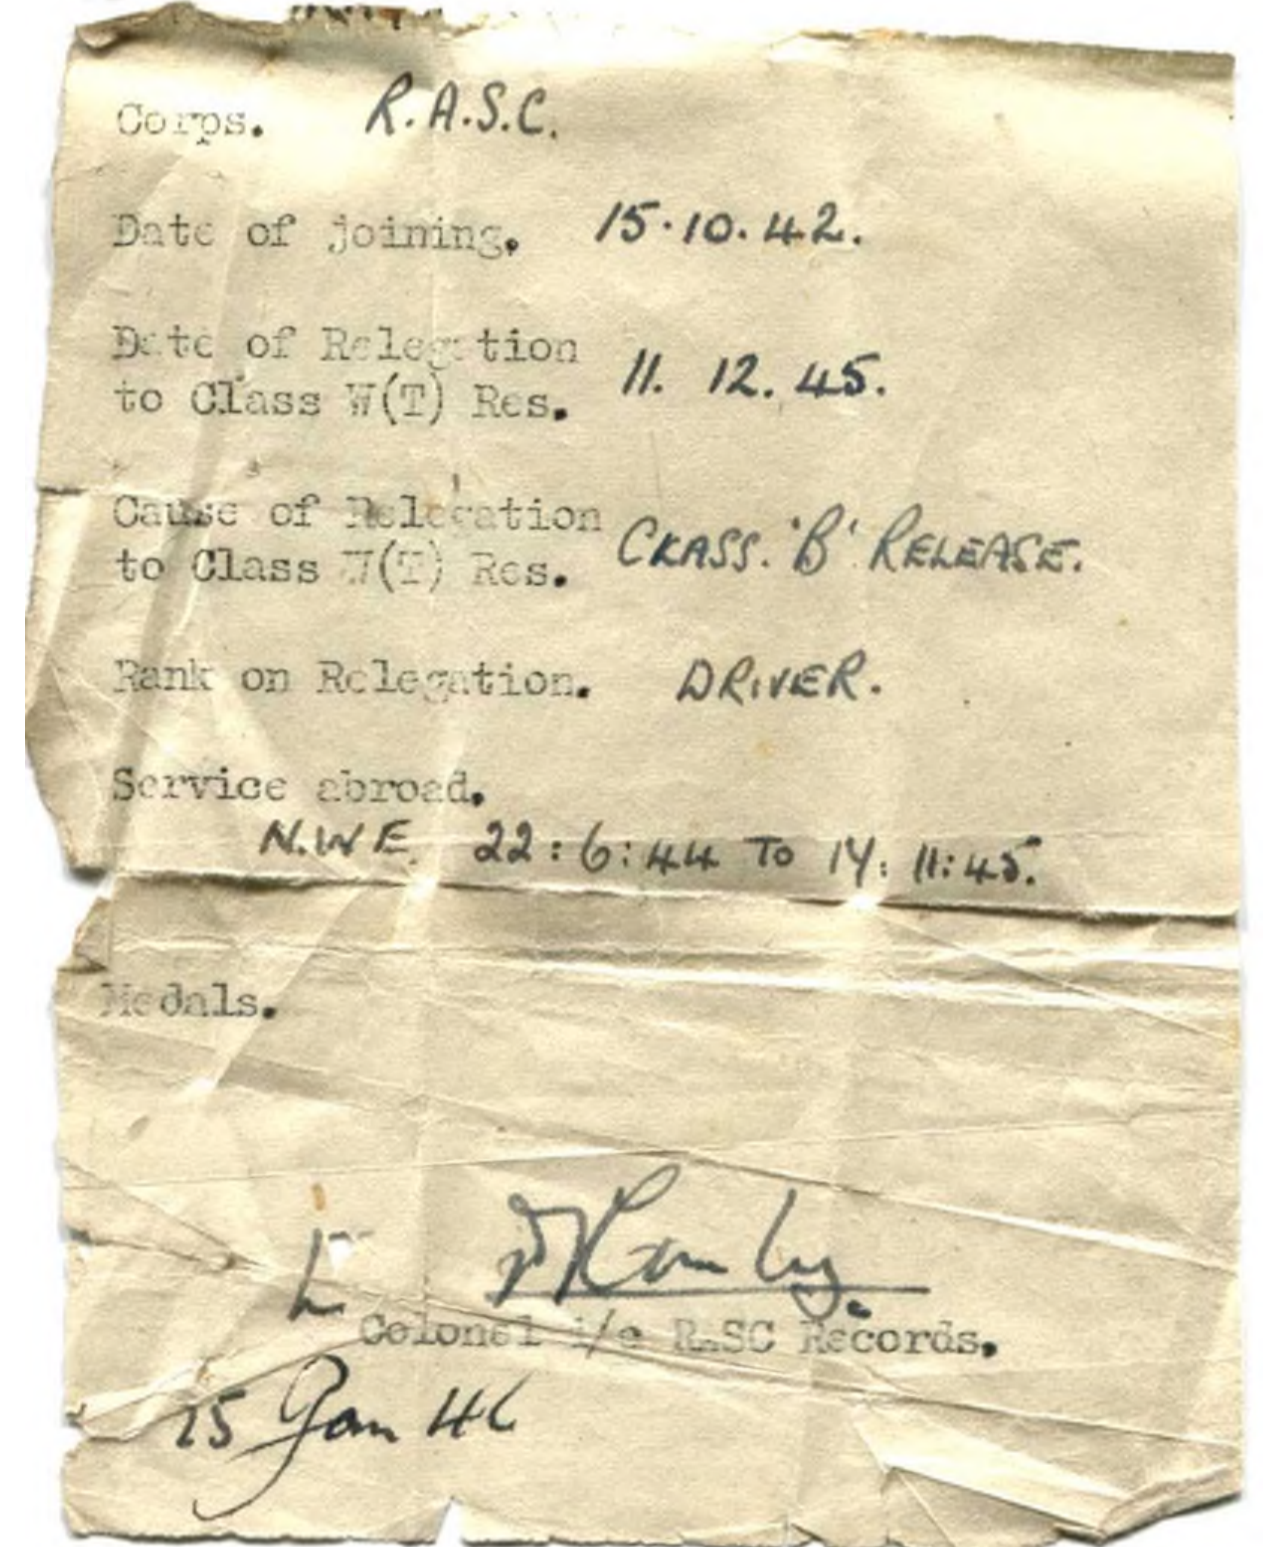 Corps. R.A.S.C.
Date of joining. 15.10.42.
Date of Relegation
to Class W(T) Res. 11. 12. 45.
Cause of Relegation
to Class W(T) Res. CLASS. 'B' RELEASE.
Rank on Relegation. DRIVER.
Service abroad.
N.W.E. 22:6:44 TO 14:11:45.
Medals.
Colonel i/c RASC Records.
Jan 46